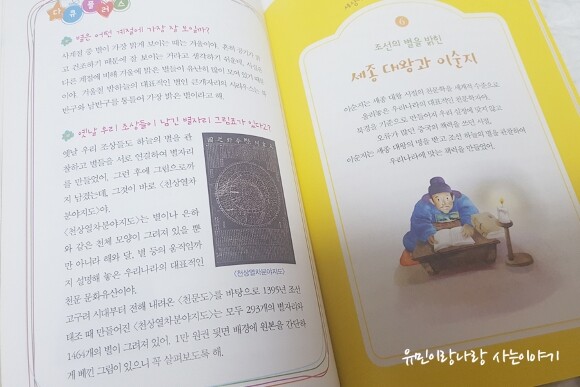 다큐플러스
별은 어떤 계절에 가장 잘 보일까?
사계절 중 별이 가장 밝게 보이는 때는 겨울이야. 흔히 공기가 맑
고 건조하기 때문에 잘 보이는 거라고 생각하기 쉬운데,
다른 계절에 비해 겨울에 밝은 별들이 유난히 많이 모여 있기 때문
이야. 겨울철 밤하늘의 대표적인 별인 큰개자리의 시리우스는 북
반구와 남반구를 통틀어 가장 밝은 별이라고 해.
옛날 우리 조상들이 남긴 별자리 그림표가 있다고?
옛날 우리 조상들도 하늘의 별을 관
찰하고 별들을 서로 연결하여 별자리
를 만들었어. 그런 후에 그림으로까
지 남겼는데, 그것이 바로 〈천상열차
분야지도〉야.
〈천상열차분야지도〉는 별이나 은하
와 같은 천체 모양이 그려져 있을 뿐
만 아니라 해와 달, 별 등의 움직임까
지 설명해 놓은 우리나라의 대표적인
천문 문화유산이야.
〈천상열차분야지도〉
고구려 시대부터 전해 내려온 〈천문도〉를 바탕으로 1395년 조선
태조 때 만들어진 〈천상열차분야지도〉에는 모두 293개의 별자리와
1467개의 별이 그려져 있어. 1만 원권 뒷면 배경에 원본을 간단하
게 베낀 그림이 있으니 꼭 살펴보도록 해.
6
조선의 별을 밝힌
세종 대왕과 이순지
이순지는 세종 대왕 시절의 천문학을 세계적 수준으로
올려놓은 우리나라의 대표적인 천문학자야.
북경을 기준으로 만들어져 우리 실정에 맞지 않고
오류가 많던 중국의 책력을 쓰던 시절,
이순지는 세종 대왕의 명을 받고 조선 하늘의 별을 관찰하여
우리나라에 맞는 책력을 만들었어.
유민이랑나랑 사는이야기